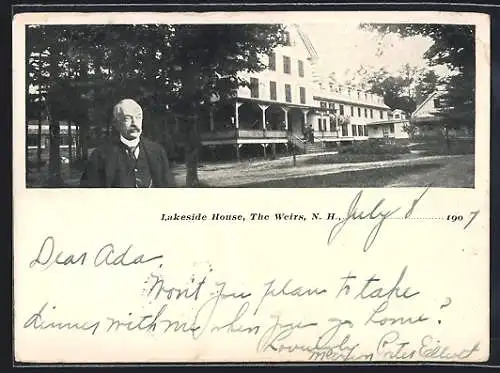 Lakeside House, The Weirs, N. H., July 8 1907
Dear Ada.
Won't you plan to take
dinner with me when you go home?
Lovingly